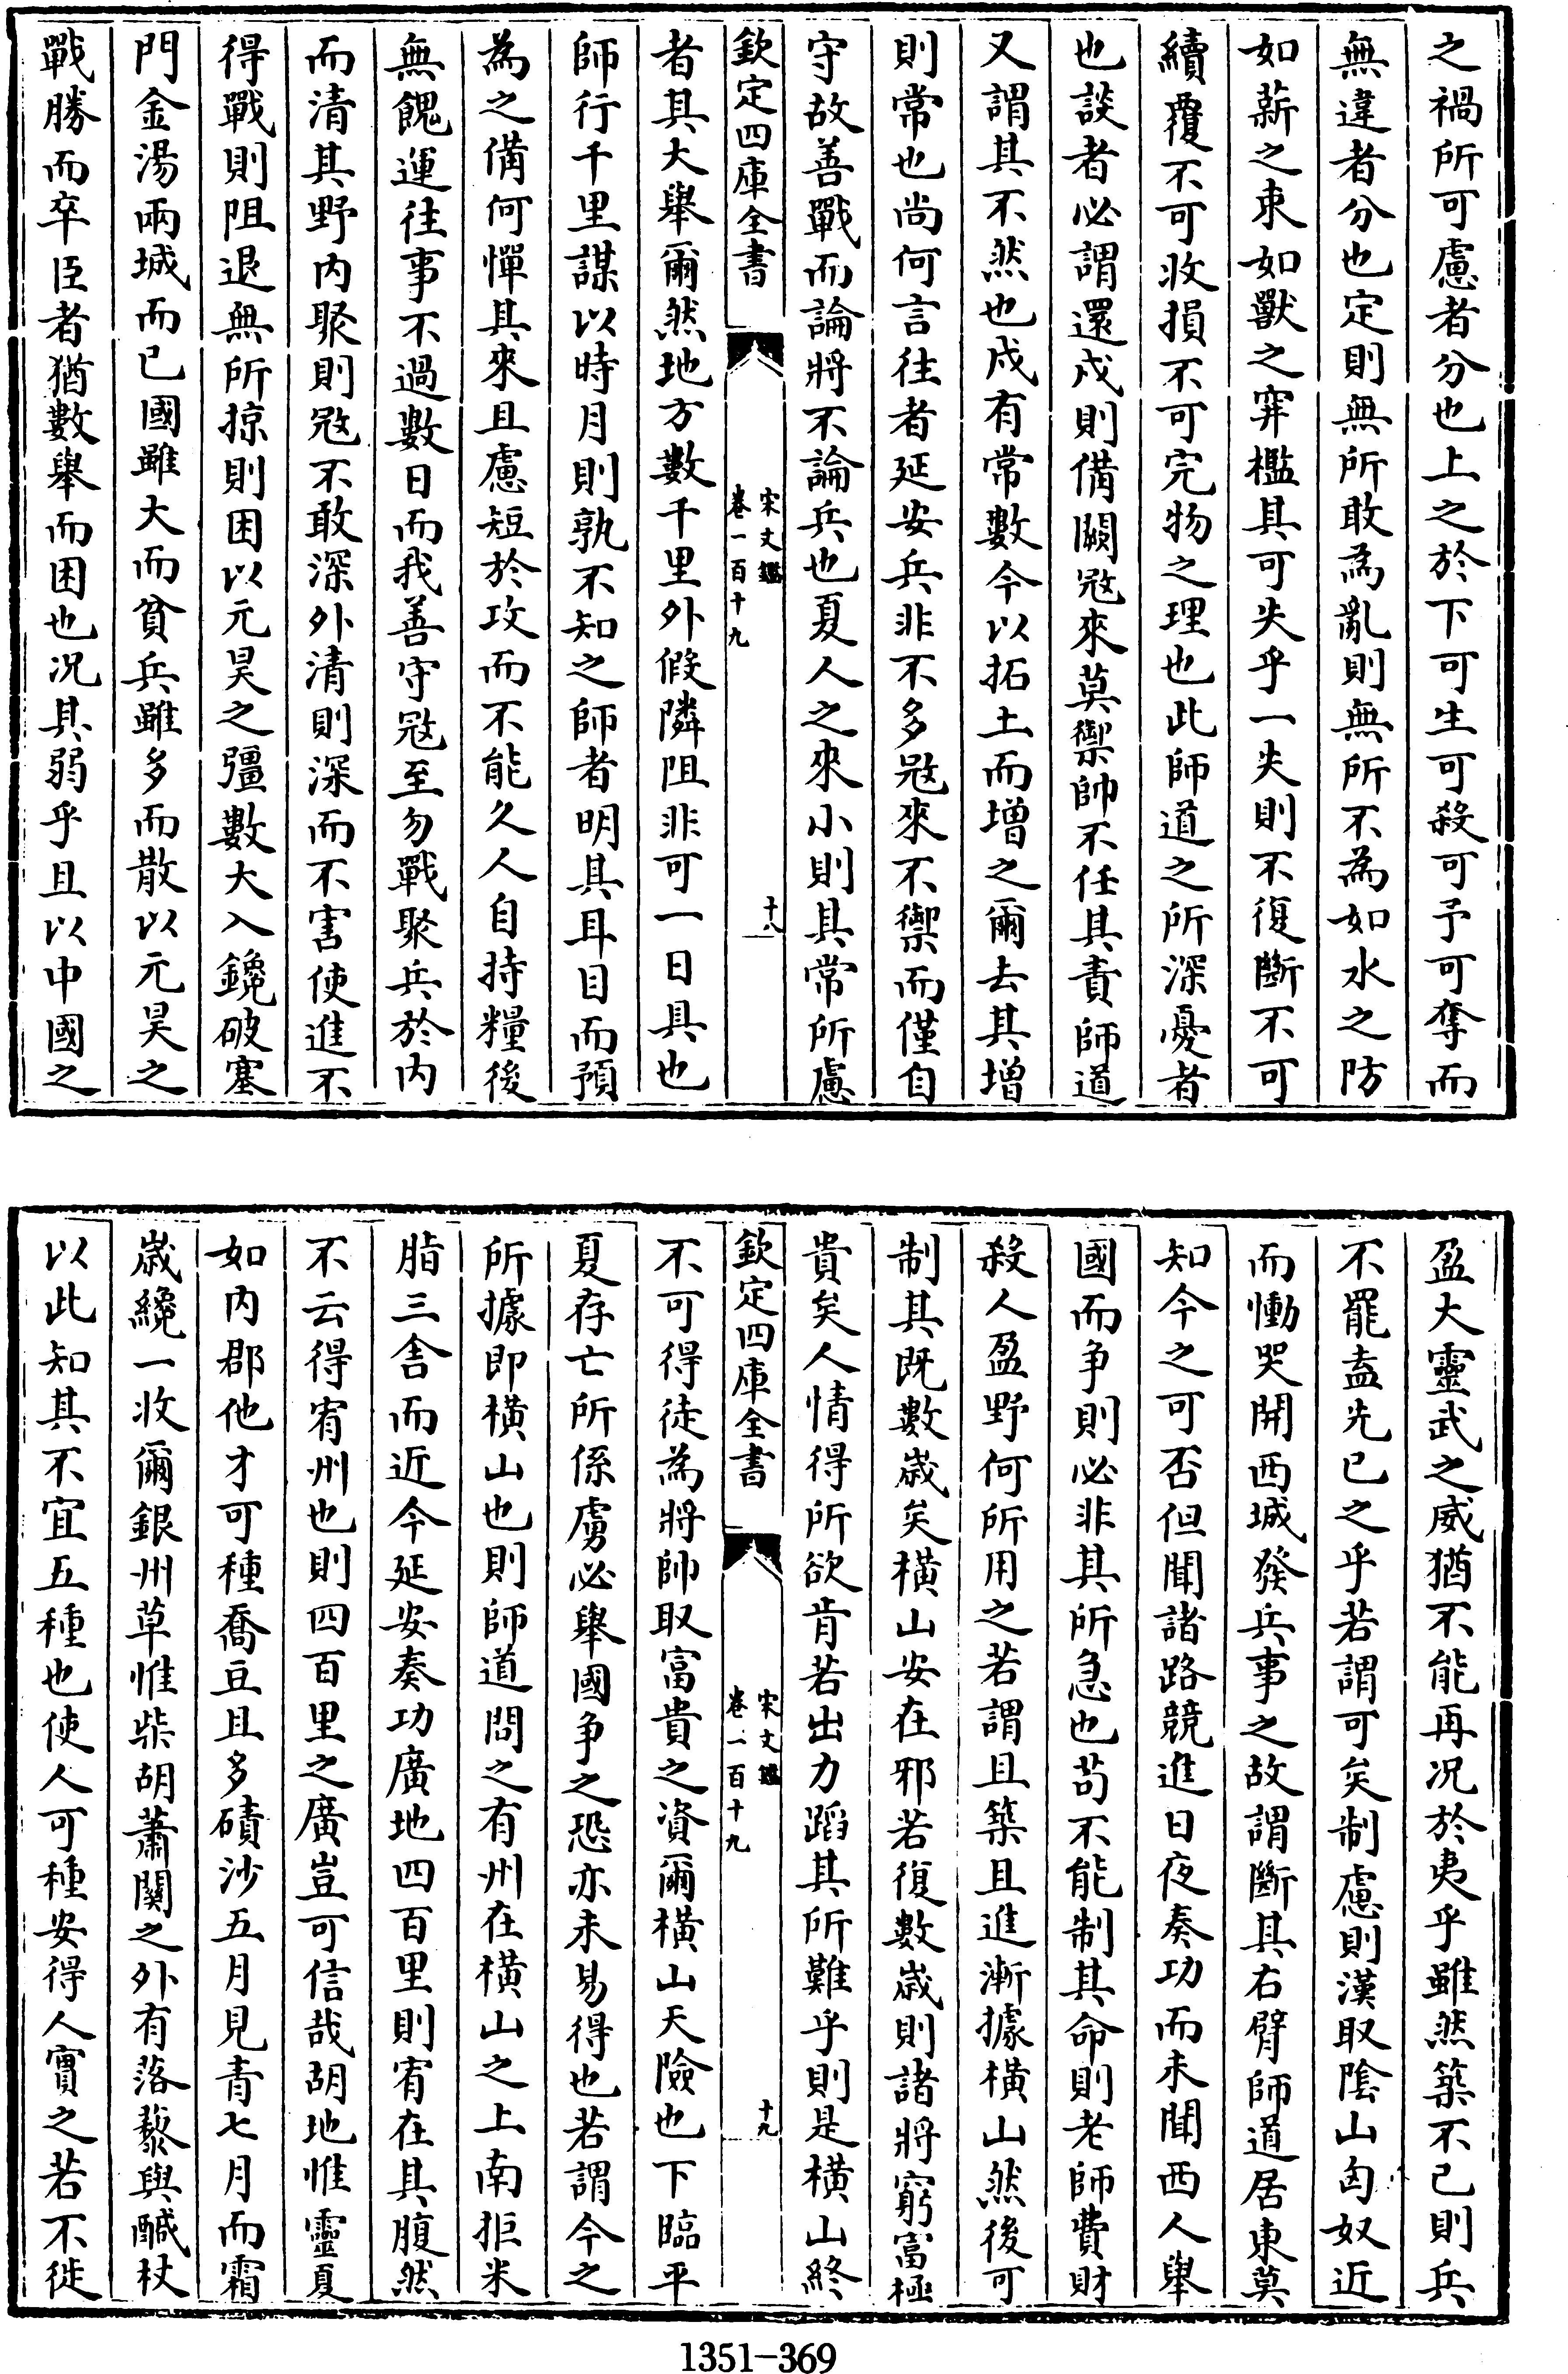 之禍所可慮者分也上之於下可生可殺可予可奪而
無違者分也定則無所敢為亂則無所不為如水之防
如薪之束如獸之穽檻其可失乎一失則不復斷不可
續覆不可收損不可完物之理也此師道之所深憂者
也談者必謂還戍則備闕冦來莫禦帥不任其責師道
又謂其不然也戍有常數今以拓土而增之爾去其增
則常也尚何言往者延安兵非不多冦來不禦而僅自
守故善戰而論將不論兵也夏人之來小則其常所慮
欽定四庫全書
宋文鑑
卷一百十九
十八
者其大舉爾然地方數千里外假隣阻非可一日具也
師行千里謀以時月則孰不知之師者明其耳目而預
為之備何憚其來且慮短於攻而不能久人自持糧後
無餽運往事不過數日而我善守冦至勿戰聚兵於内
而清其野内聚則冦不敢深外清則深而不害使進不
得戰則阻退無所掠則困以元昊之彊數大入鑱破塞
門金湯兩城而已國雖大而貧兵雖多而散以元昊之
戰勝而卒臣者猶數舉而困也况其弱乎且以中國之
盈大靈武之威猶不能再况於夷乎雖然築不已則兵
不罷盍先已之乎若謂可矣制慮則漢取隂山匈奴近
而慟哭開西城發兵事之故謂斷其右臂師道居東莫
知今之可否但聞諸路競進日夜奏功而未聞西人舉
國而争則必非其所急也苟不能制其命則老師費財
殺人盈野何所用之若謂且築且進漸據横山然後可
制其既數歳矣横山安在邪若復數歳則諸將窮富極
貴矣人情得所欲肯若出力蹈其所難乎則是横山終
欽定四庫全書
宋文鑑
卷一百十九
十九
不可得徒為將帥取富貴之資爾横山天險也下臨平
夏存亡所係虜必舉國争之恐亦未易得也若謂今之
所據即横山也則師道問之有州在横山之上南拒米
脂三舎而近今延安奏功廣地四百里則宥在其腹然
不云得宥州也則四百里之廣豈可信哉胡地惟靈夏
如内郡他才可種喬豆且多磧沙五月見青七月而霜
歳纔一收爾銀州草惟柴胡蕭關之外有落藜與醎杖
以此知其不宜五種也使人可種安得人實之若不徙
1351-369